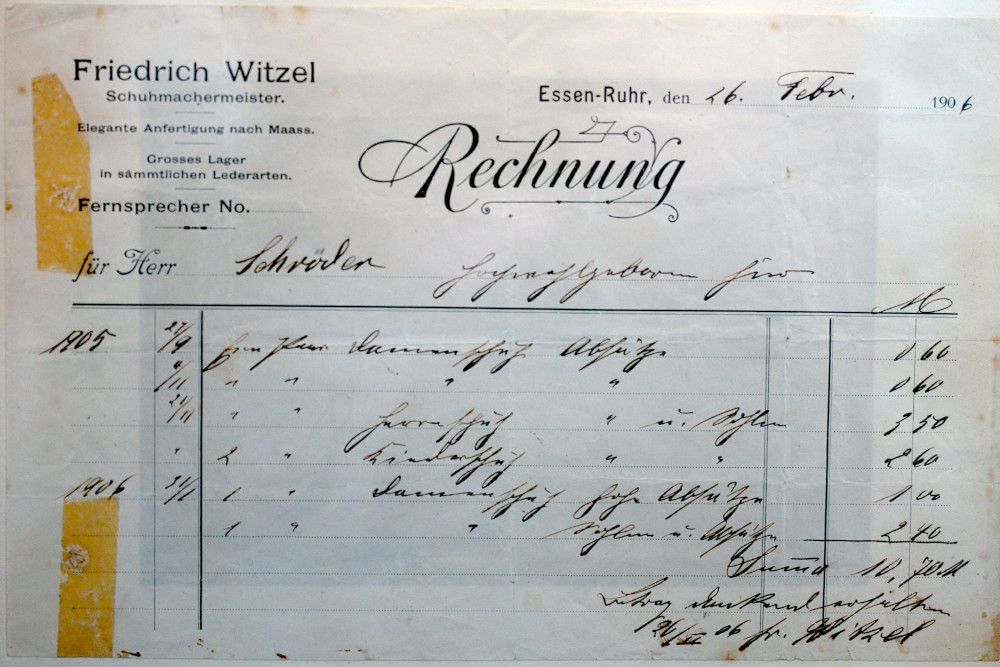 Friedrich Witzel
Schuhmachermeister.
Elegante Anfertigung nach Maass.
Grosses Lager
in sämmtlichen Lederarten.
Fernsprecher No.
Essen-Ruhr, den 26. Febr. 1906
Rechnung
für Herr Schröder Hochwohlgeboren hier
M
1905 27/9 Ein Paar Damenschuh Absätze 0 60
/11 " " " " 0 60
21/11 " " Herrenschuh " u. Sohlen 3 50
" 2 " Kinderschuh " " 2 60
1906 31/1 1 " Damenschuh hohe Absätze 1 00
1 " " Sohlen u. Absätze 2 40
Summa 10,70 M
Betrag dankend erhalten
26/II 06 Fr. Witzel